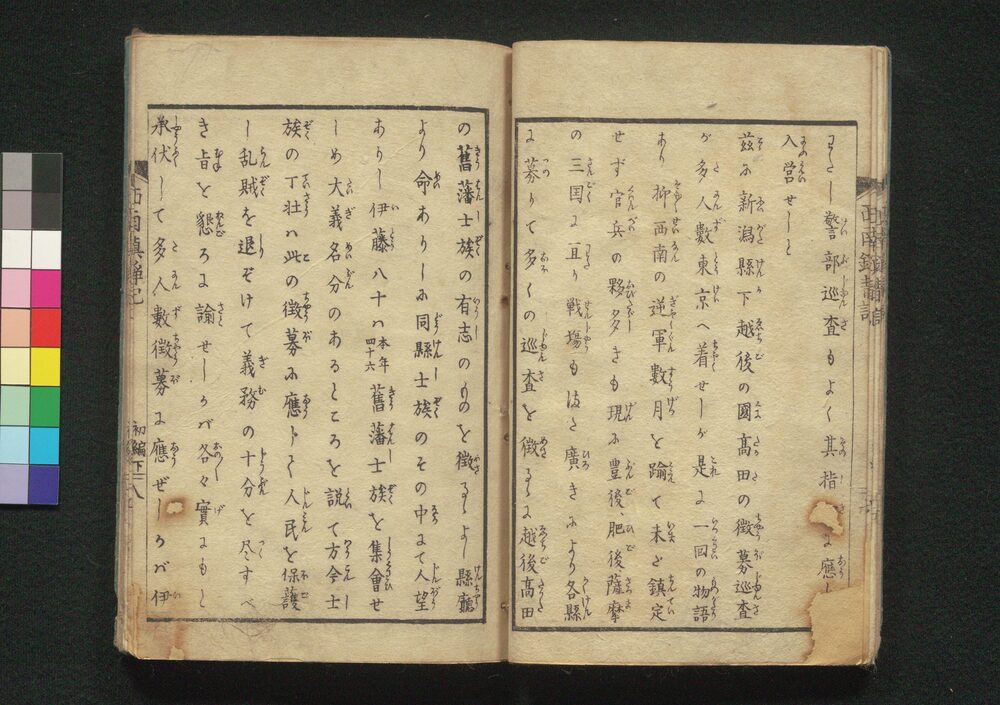 わたし警部巡査もよく其指に應じ
入営せしと
茲に新潟縣下越後の國髙田の徴募巡査
が多人數東京へ着せしが是に一回の物語
あり抑西南の逆軍數月を踰て未と鎮定
せず官兵の夥多きも現に豊後、肥後薩摩
の三囯に亘り戦場もほと廣きより各縣
に募りて多くの巡査を徴るに越後髙田
の舊藩士族の有志のものを徴るよし縣廳
より命ありしに同縣士族のその中にて人望
ありし伊藤八十八本年四十六舊藩士族を集會せ
しめ大義名分のあるところを説て方今士
族の丁壮ハ此の徴募に應じて人民を保護
し乱賊を退ぞけて義務の十分を尽すべ
き旨を懇ろに諭せしが各々實にもと
承伏して多人數徴募に應ぜしが伊
初編下